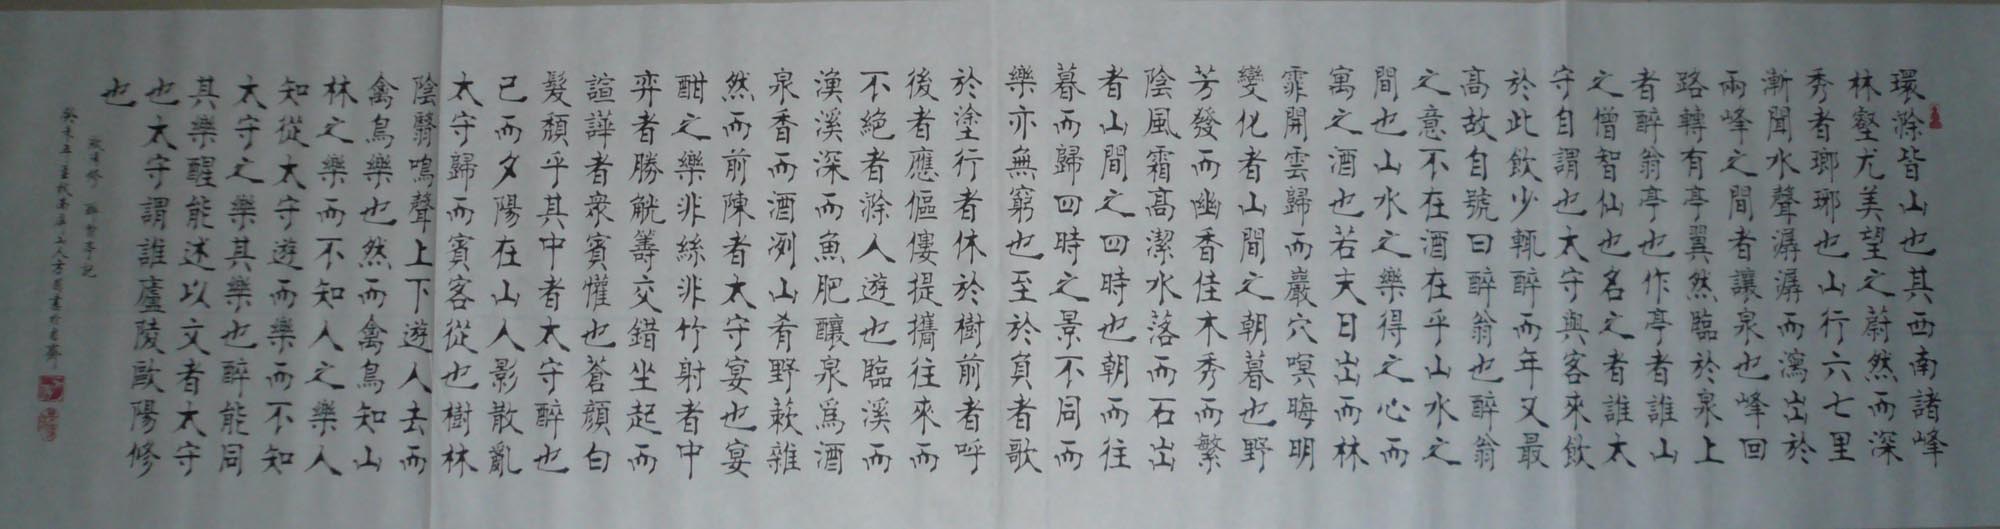 環滁皆山也其西南諸峰
林壑尤美望之蔚然而深
秀者瑯琊也山行六七里
漸聞水聲潺潺而瀉出於
兩峰之間者讓泉也峰回
路轉有亭翼然臨於泉上
者醉翁亭也作亭者誰山
之僧智仙也名之者誰太
守自謂也太守與客來飲
於此飲少輒醉而年又最
高故自號曰醉翁也醉翁
之意不在酒在乎山水之
間也山水之樂得之心而
寓之酒也若夫日出而林
霏開雲歸而巖穴暝晦明
變化者山間之朝暮也野
芳發而幽香佳木秀而繁
陰風霜高潔水落而石出
者山間之四時也朝而往
暮而歸四時之景不同而
樂亦無窮也至於負者歌
於塗行者休於樹前者呼
後者應傴僂提攜往來而
不絕者滁人遊也臨溪而
漁溪深而魚肥釀泉爲酒
泉香而酒洌山肴野蔌雜
然而前陳者太守宴也宴
酣之樂非絲非竹射者中
弈者勝觥籌交錯坐起而
諠譁者眾賓懽也蒼顏白
髮頹乎其中者太守醉也
已而夕陽在山人影散亂
太守歸而賓客從也樹林
陰翳鳴聲上下遊人去而
禽鳥樂也然而禽鳥知山
林之樂而不知人之樂人
知從太守遊而樂而不知
太守之樂其樂也醉能同
其樂醒能述以文者太守
也太守謂誰廬陵歐陽修
也
歐陽修 醉翁亭記
癸未年